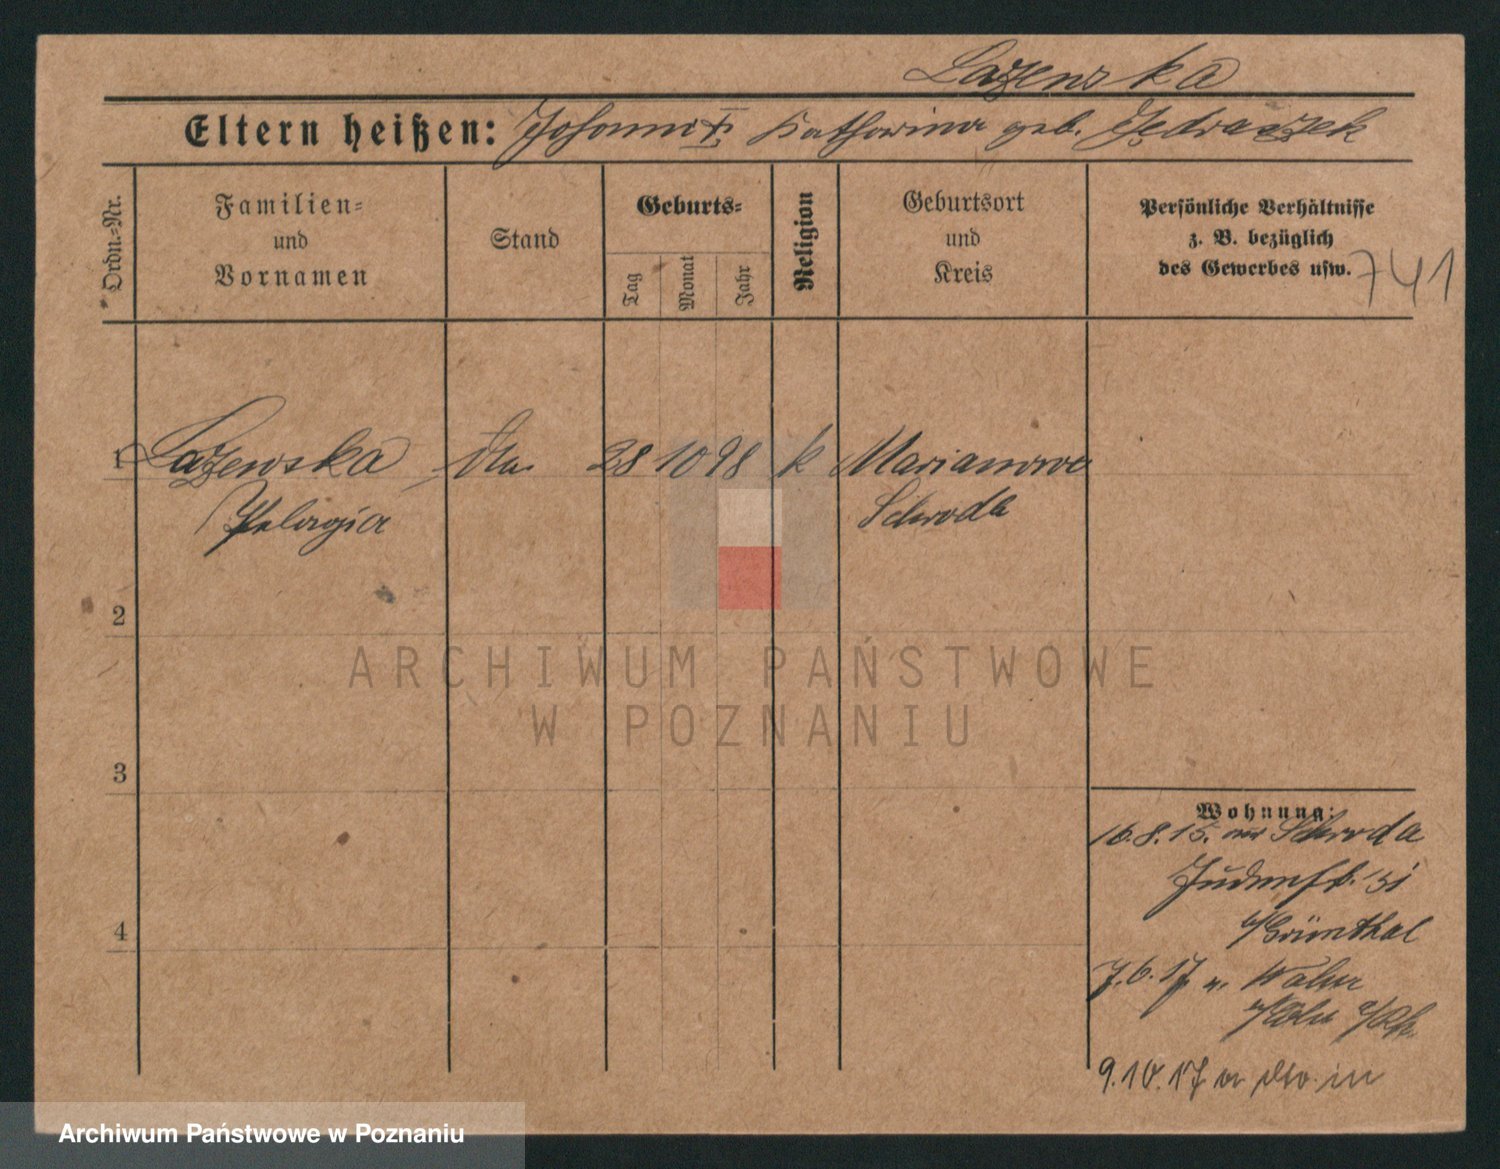 Lazewska
Eltern heißen: Johann Katharina geb. Jędraszek
Ordn.-Nr.
Familien-
und
Vornamen
Stand
Geburts-
Tag
Monat
Jahr
Religion
Geburtsort
und
Kreis
Persönliche Verhältnisse
z. B. bezüglich
des Gewerbes usw.
741
1 Lazewska 28 10 98 k Marianowo
Pelagia Schroda
2
3
4
ARCHIWUM PAŃSTWOWE
W POZNANIU
Wohnung:
16.8.15. Schroda
Judenstr. 31
b/Grünthal
7.6.17 n.
9.10.17
Archiwum Państwowe w Poznaniu